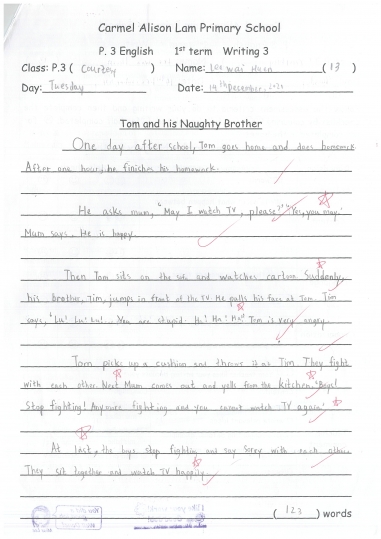 Carmel Alison Lam Primary School
P. 3 English 1st term Writing 3
Class: P.3 ( Courtesy ) Name: Lee Wai Huen ( 13 )
Day: Tuesday Date: 14th December, 2021
Tom and his Naughty Brother
One day after school, Tom goes home and does homework.
After one hour, he finishes his homework.
He asks mum, "May I watch TV, please?" "Yes, you may."
Mum says. He is happy.
Then Tom sits on the sofa and watches cartoon. Suddenly,
his brother, Tim, jumps in front of the TV. He pulls his face at Tom. Tim
says, "Lu! Lu! Lu!... You are stupid. Ha! Ha! Ha!" Tom is very angry.
Tom picks up a cushion and throws it at Tim. They fight
with each other. Next Mum comes out and yells from the kitchen, "Boys!
Stop fighting! Anymore fighting and you cannot watch TV again!"
At last, the boys stop fighting and say sorry with each other.
They sit together and watch TV happily.
( 123 ) words